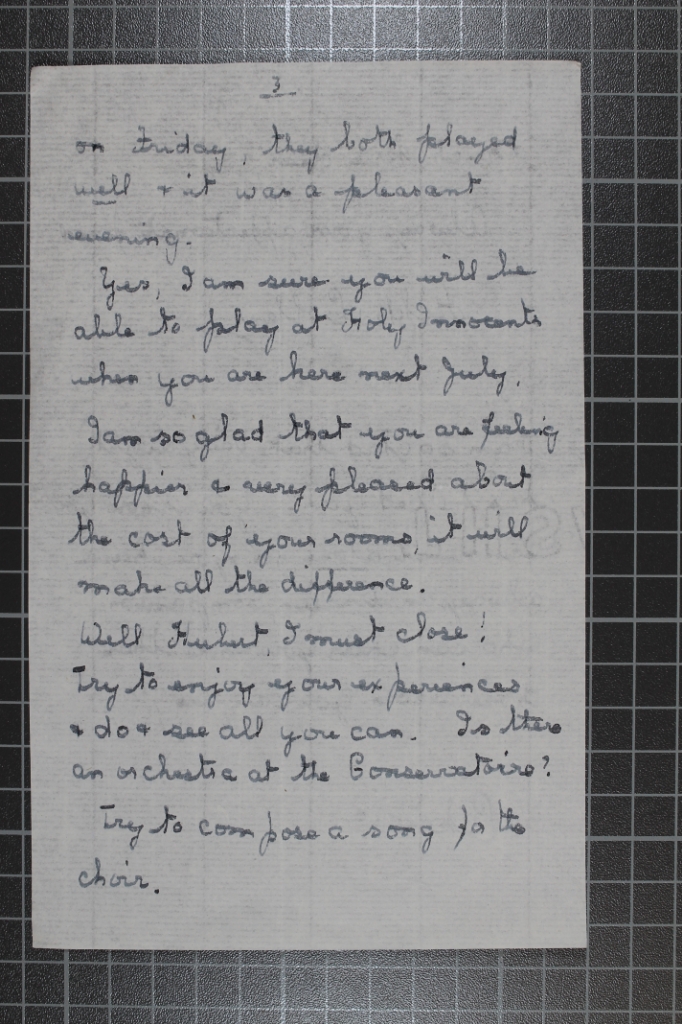 3
on Friday, they both played
well & it was a pleasant
evening.
Yes, I am sure you will be
able to play at Holy Innocents
when you are here next July.
I am so glad that you are feeling
happier & very pleased about
the cost of your rooms, it will
make all the difference.
Well Hubert, I must close!
Try to enjoy your experiences
& do & see all you can. Is there
an orchestra at the Conservatoire?
Try to compose a song for the
choir.